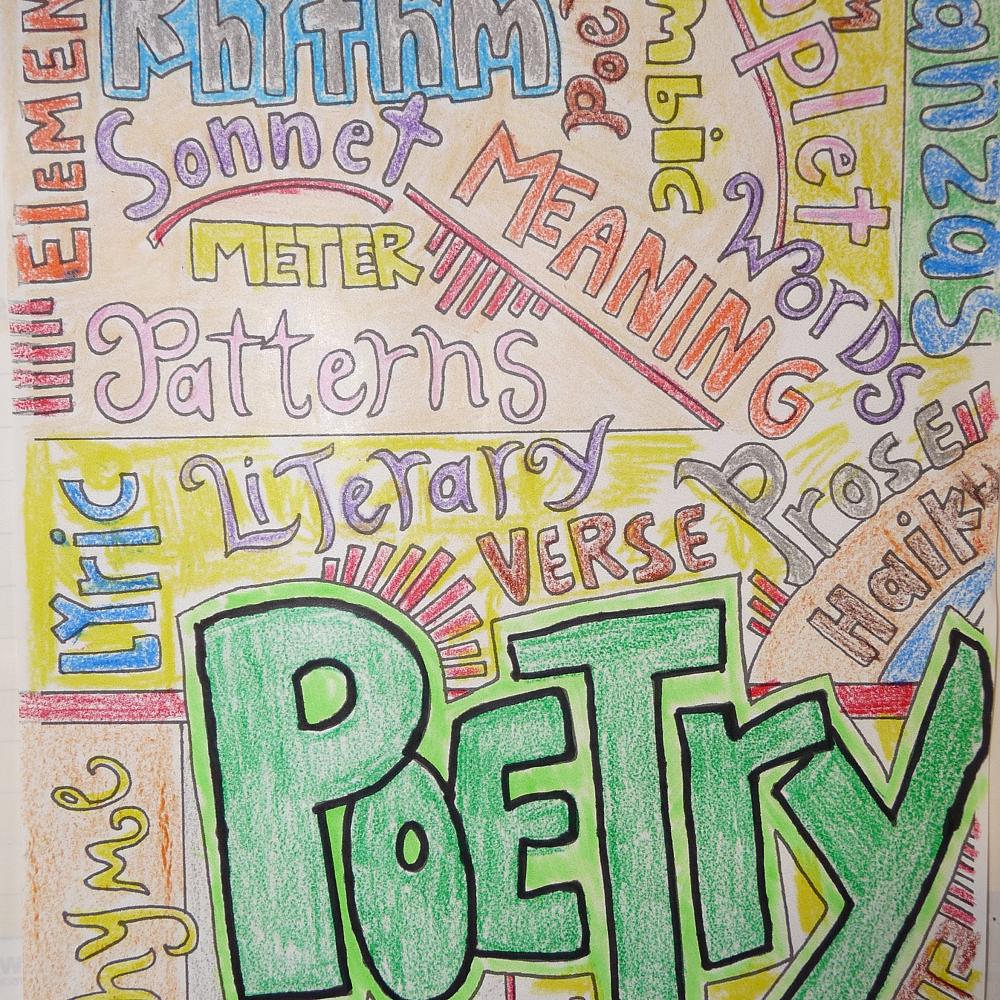 Rhythm
ElEMEN
Sonnet
METER
Patterns
Poe
mbic
uplet
anzas
MEANING
Words
Lyric
Literary
VERSE
Prose
Haik
POETrY
hyme